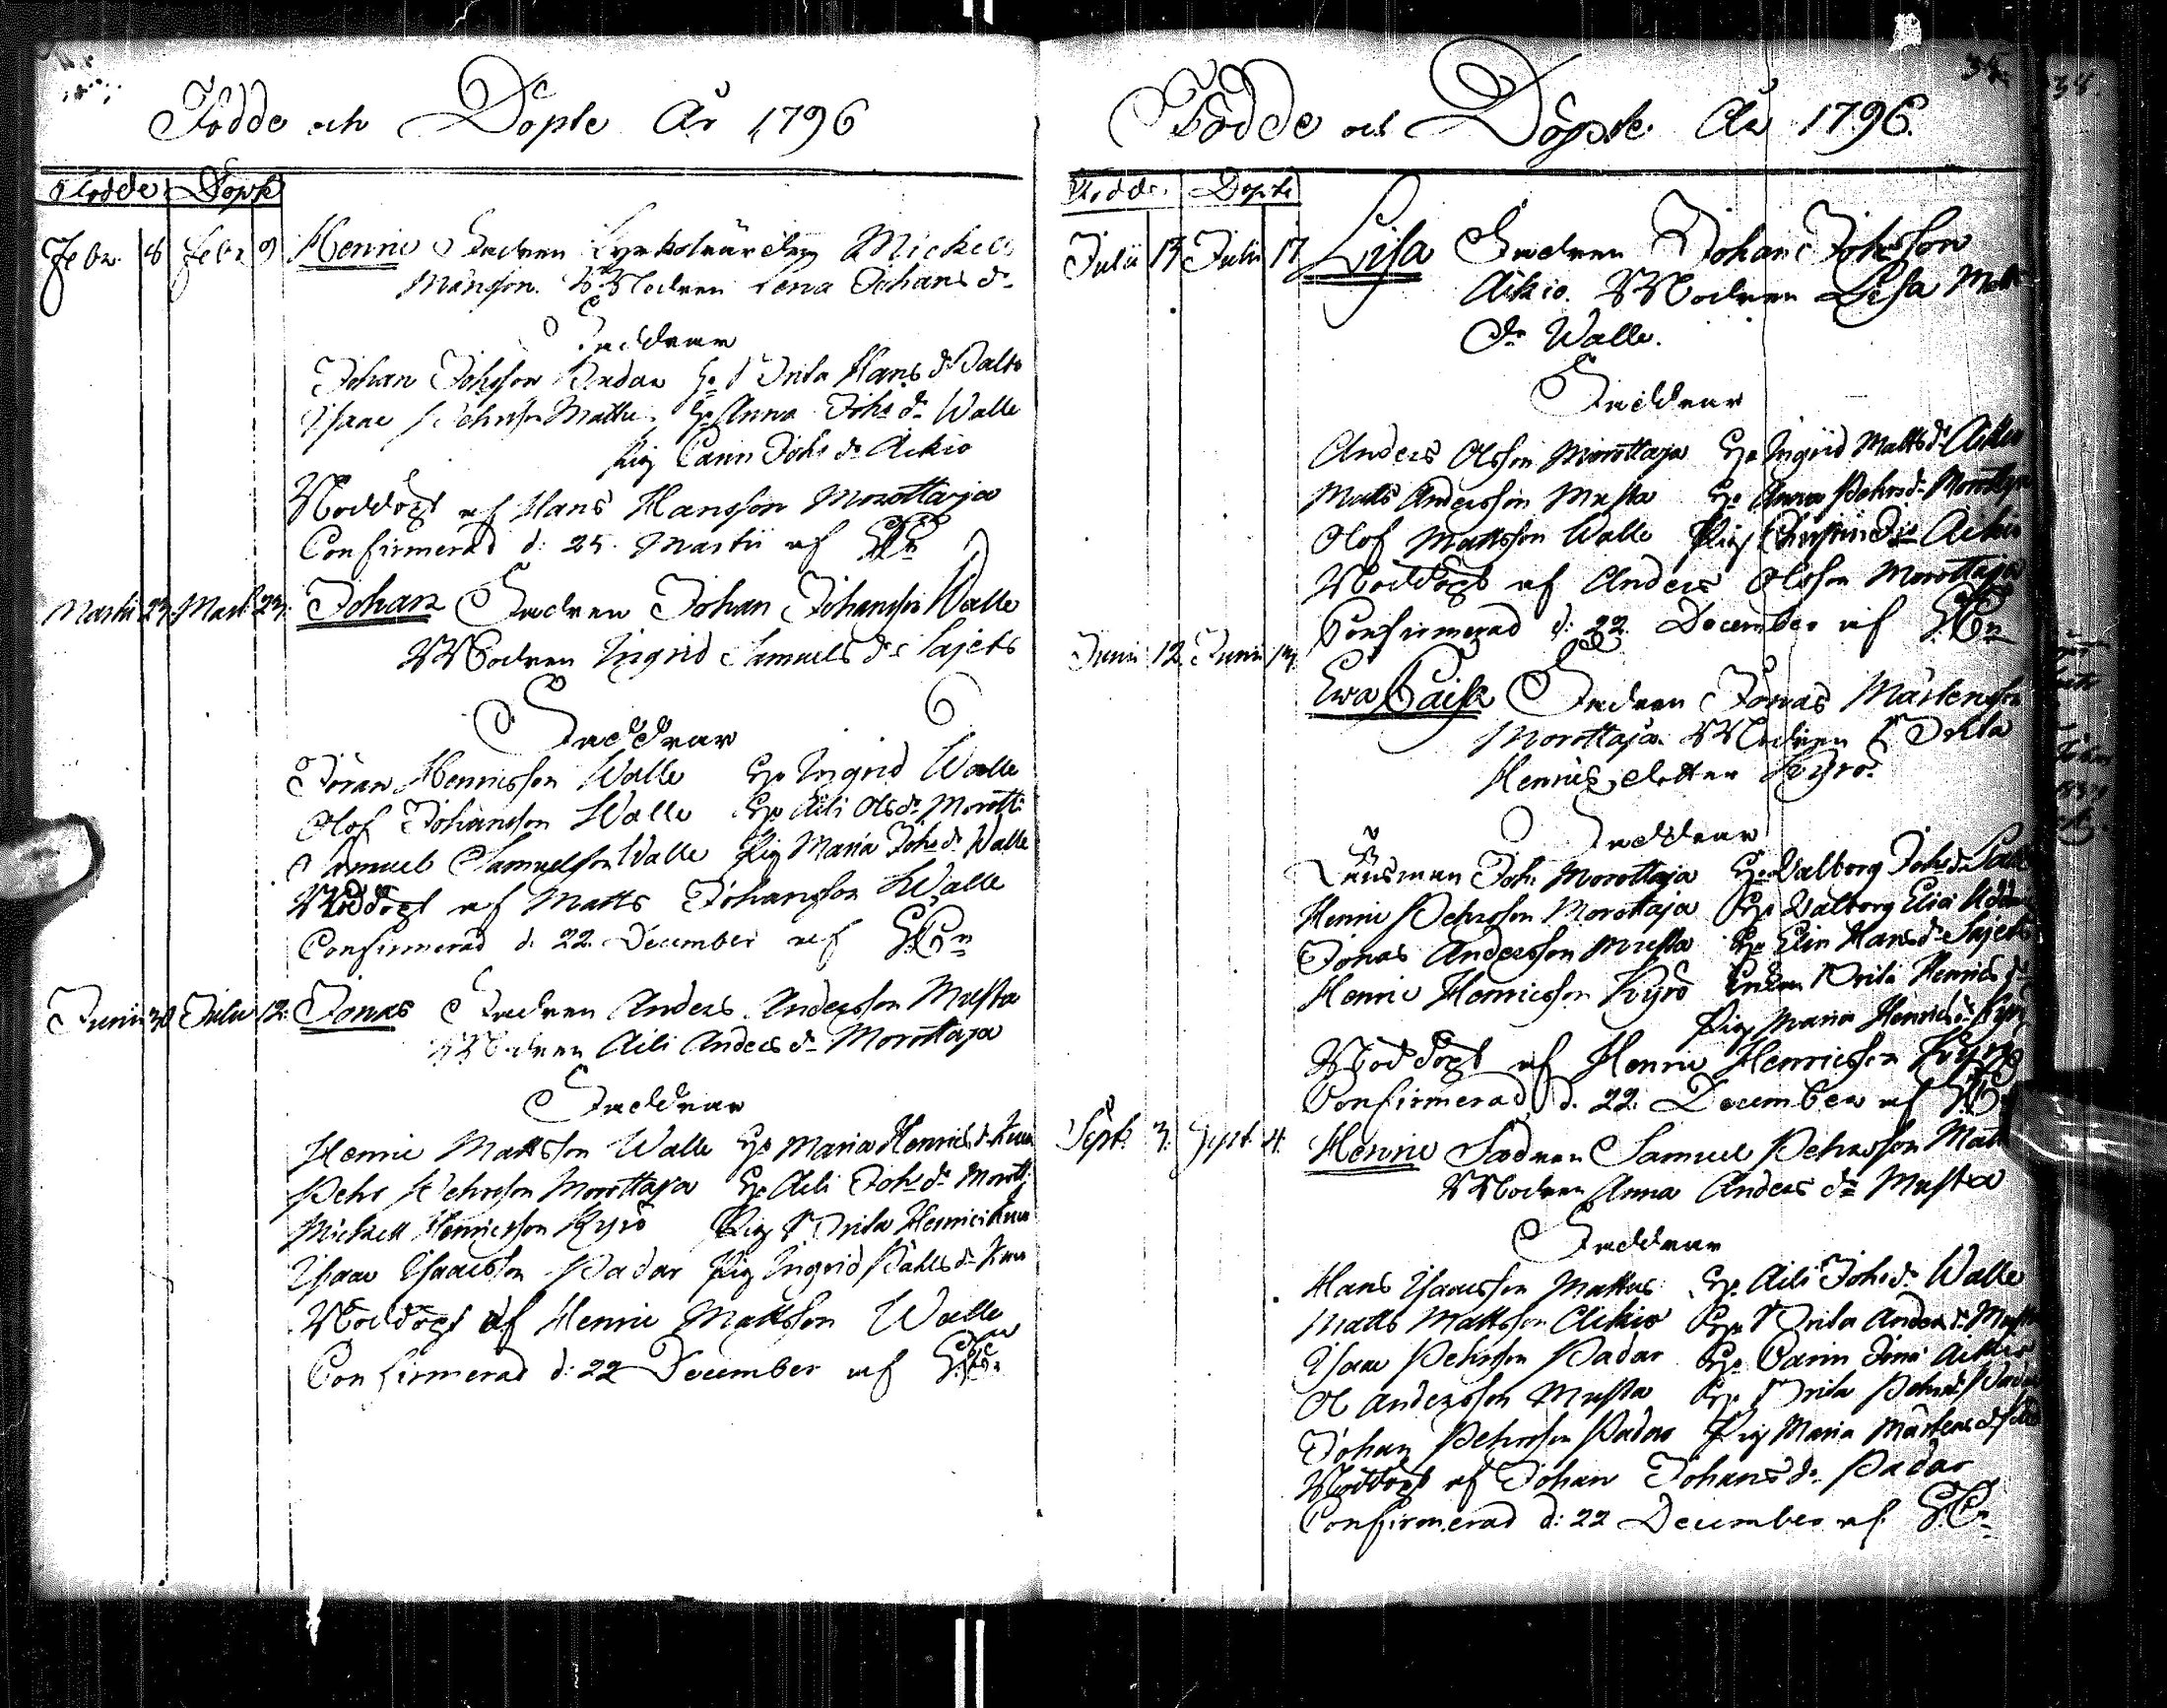 Födde och Döpte År 1796
Födde Döpte
Febr. 8 Febr. 9 Henric Fadren Kyrkowärden Mickel
Månsson. Modren Lena Johans dr
Faddrar
Johan Johsson Padar Hu Brita Hans dr Valle
Isaac Pehrsson Mattus Hu Anna Johs dr Walle
Pig Carin Johs dr Aikio
Nöddöpt af Hans Hansson Morottaja
Confirmerad d: 25. Martii af
Martii 23 Mart. 23. Johan Fadren Johan Johansson Walle
Modren Ingrid Samuels dr Sajets
Faddrar
Jöran Henricsson Walle Hu Ingrid Walle
Olof Johansson Walle Hu Aili Ols dr Morotti
Samuel Samuelsson Walle Pig Maria Johs dr Walle
Nöddöpt af Matts Johansson Walle
Confirmerad d. 22. December af
Junii 30 Julii 12. Jonas Fadren Anders Andersson Musta
Modren Aili Anders dr Morottaja
Faddrar
Henric Mattsson Walle Hu Maria Henrics dr
Pehr Pehrsson Morottaja Hu Aili Joh dr Morotti
Mickell Henricsson Kyrö Pig Brita Henrics
Isaac Isaacsson Padar Pig Ingrid Påhls dr
Nöddöpt af Henric Mattsson Walle
Confirmerad d: 22 December af
Födde och Döpte År 1796.
Födde. Döpte
Julii 13 Julii 17 Lisa Fadren Johan Johsson
Aikio. Modren Lisa Matts
dr Walle.
Faddrar
Anders Olsson Morottaja Hu Ingrid Matts dr Aikio
Matts Andersson Musta Hu Anna Pehrs dr Morottaja
Olof Mattsson Walle Pig Christin dr Aikio
Nöddöpt af Anders Olsson Morottaja
Confirmerad d: 22. December af
Junii 12. Junii Ewa Caisa Fadren Jonas Mårtensson
Morottaja. Modren Brita
Henrics dotter Kyrö.
Faddrar
Länsman Joh. Morottaja Hu Walborg Johs dr
Henric Pehrsson Morottaja Hu Walborg Elia
Jonas Andersson Musta Hu Elin Hans dr Sajets
Henric Henricsson Kyrö Enkan Brita Henrics dr
Pig Maria Henrics dr Kyrö
Nöddöpt af Henric Henricsson Kyrö
Confirmerad d. 22. December af
Sept. 3. Sept. 4. Henric Fadren Samuel Pehrsson Matt
Modren Anna Anders dr Musta
Faddrar
Hans Isaacsson Mattus Hu Aili Johs dr Walle
Matts Mattsson Aikio Hu Brita Anders dr Musta
Isaac Pehrsson Padar Hu Carin Aikio
Ol Andersson Musta Hu Brita Pehrs dr Padar
Johan Pehrsson Padar Pig Maria Mårtens dr
Nöddöpt af Johan Johans dr Padar
Confirmerad d: 22 December af